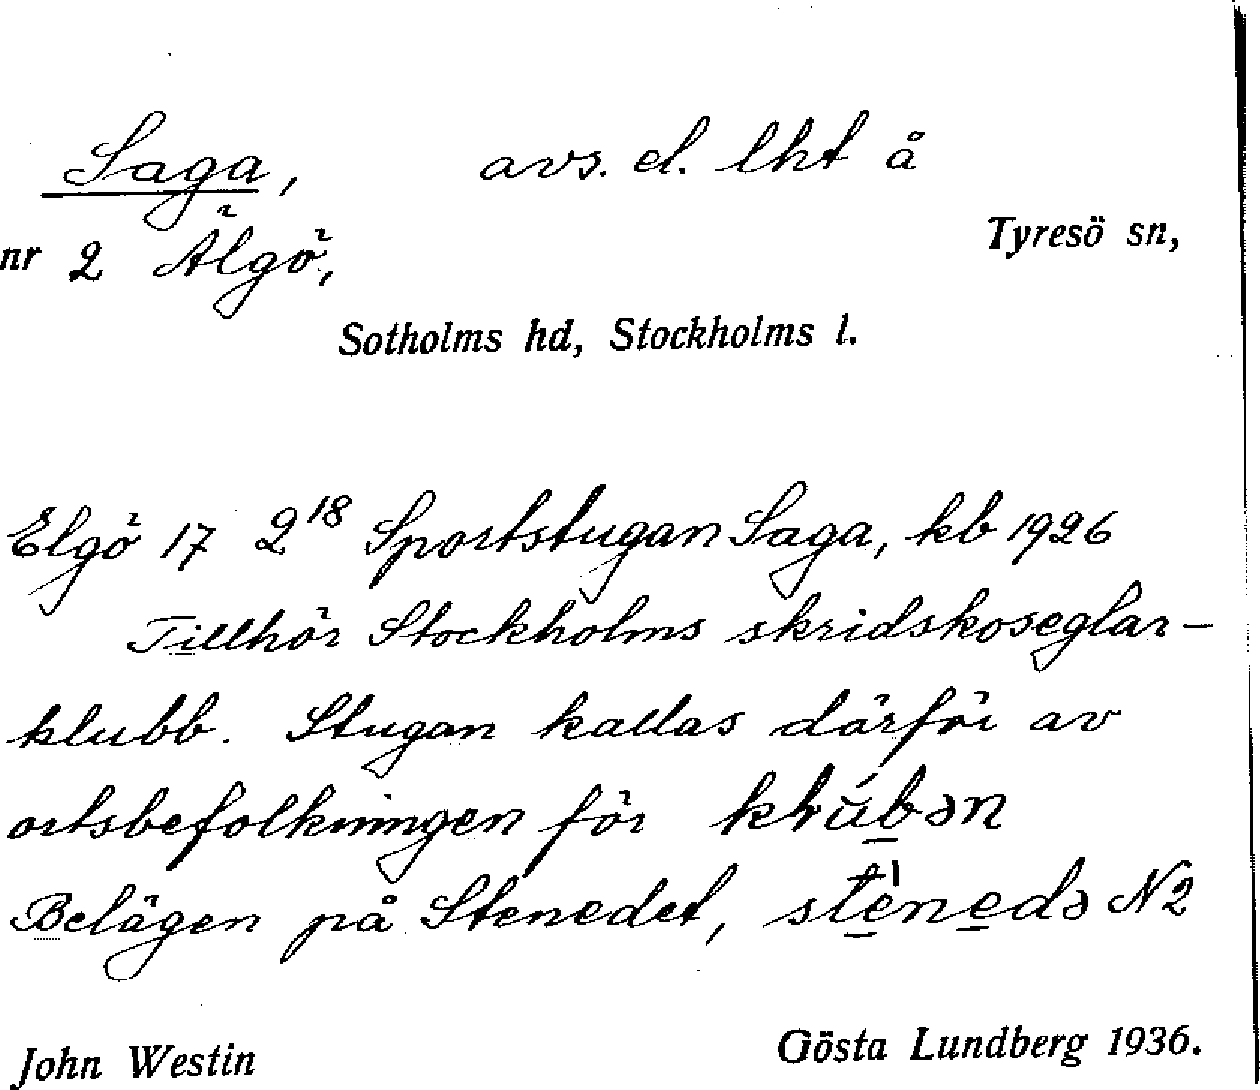 Saga, avs. d. lht å
nr 2 Älgö, Tyresö sn,
Sotholms hd, Stockholms l.
Elgö 17 2¹⁸ Sportstugan Saga, kb 1926
Tillhör Stockholms skridskoseglar-
klubb. Stugan kallas därför av
ortsbefolkningen för
Belägen på Stenedet, N2
John Westin Gösta Lundberg 1936.